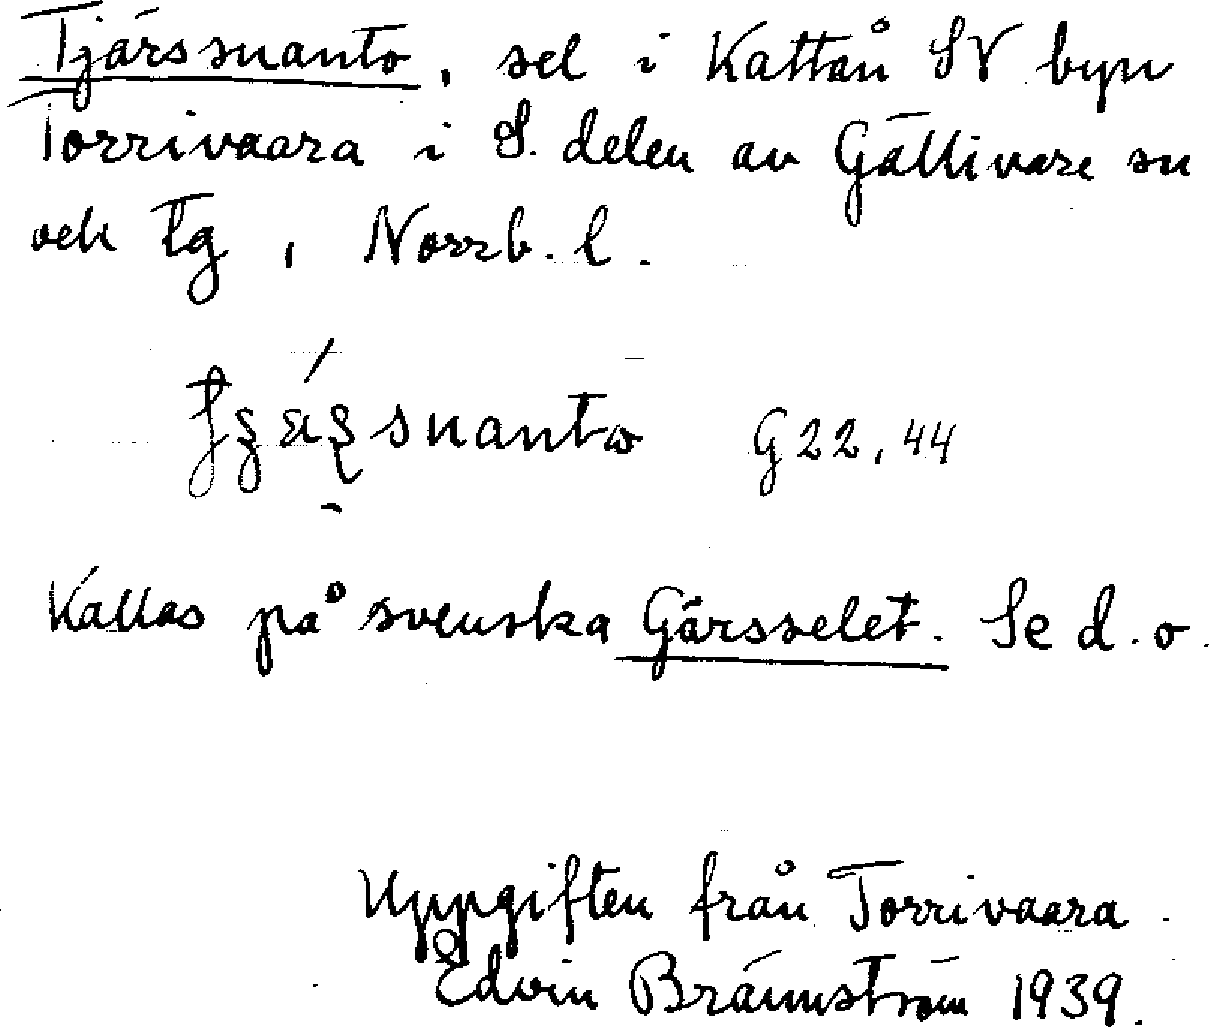 Tjärssuanto, sel i Kattån SV byn
Torrivaara i S. delen av Gällivare sn
och tg, Norrb. l.
G 22, 44
Kallas på svenska Gärsselet. Se d. o.
Uppgiften från Torrivaara
Edvin Brännström 1939.